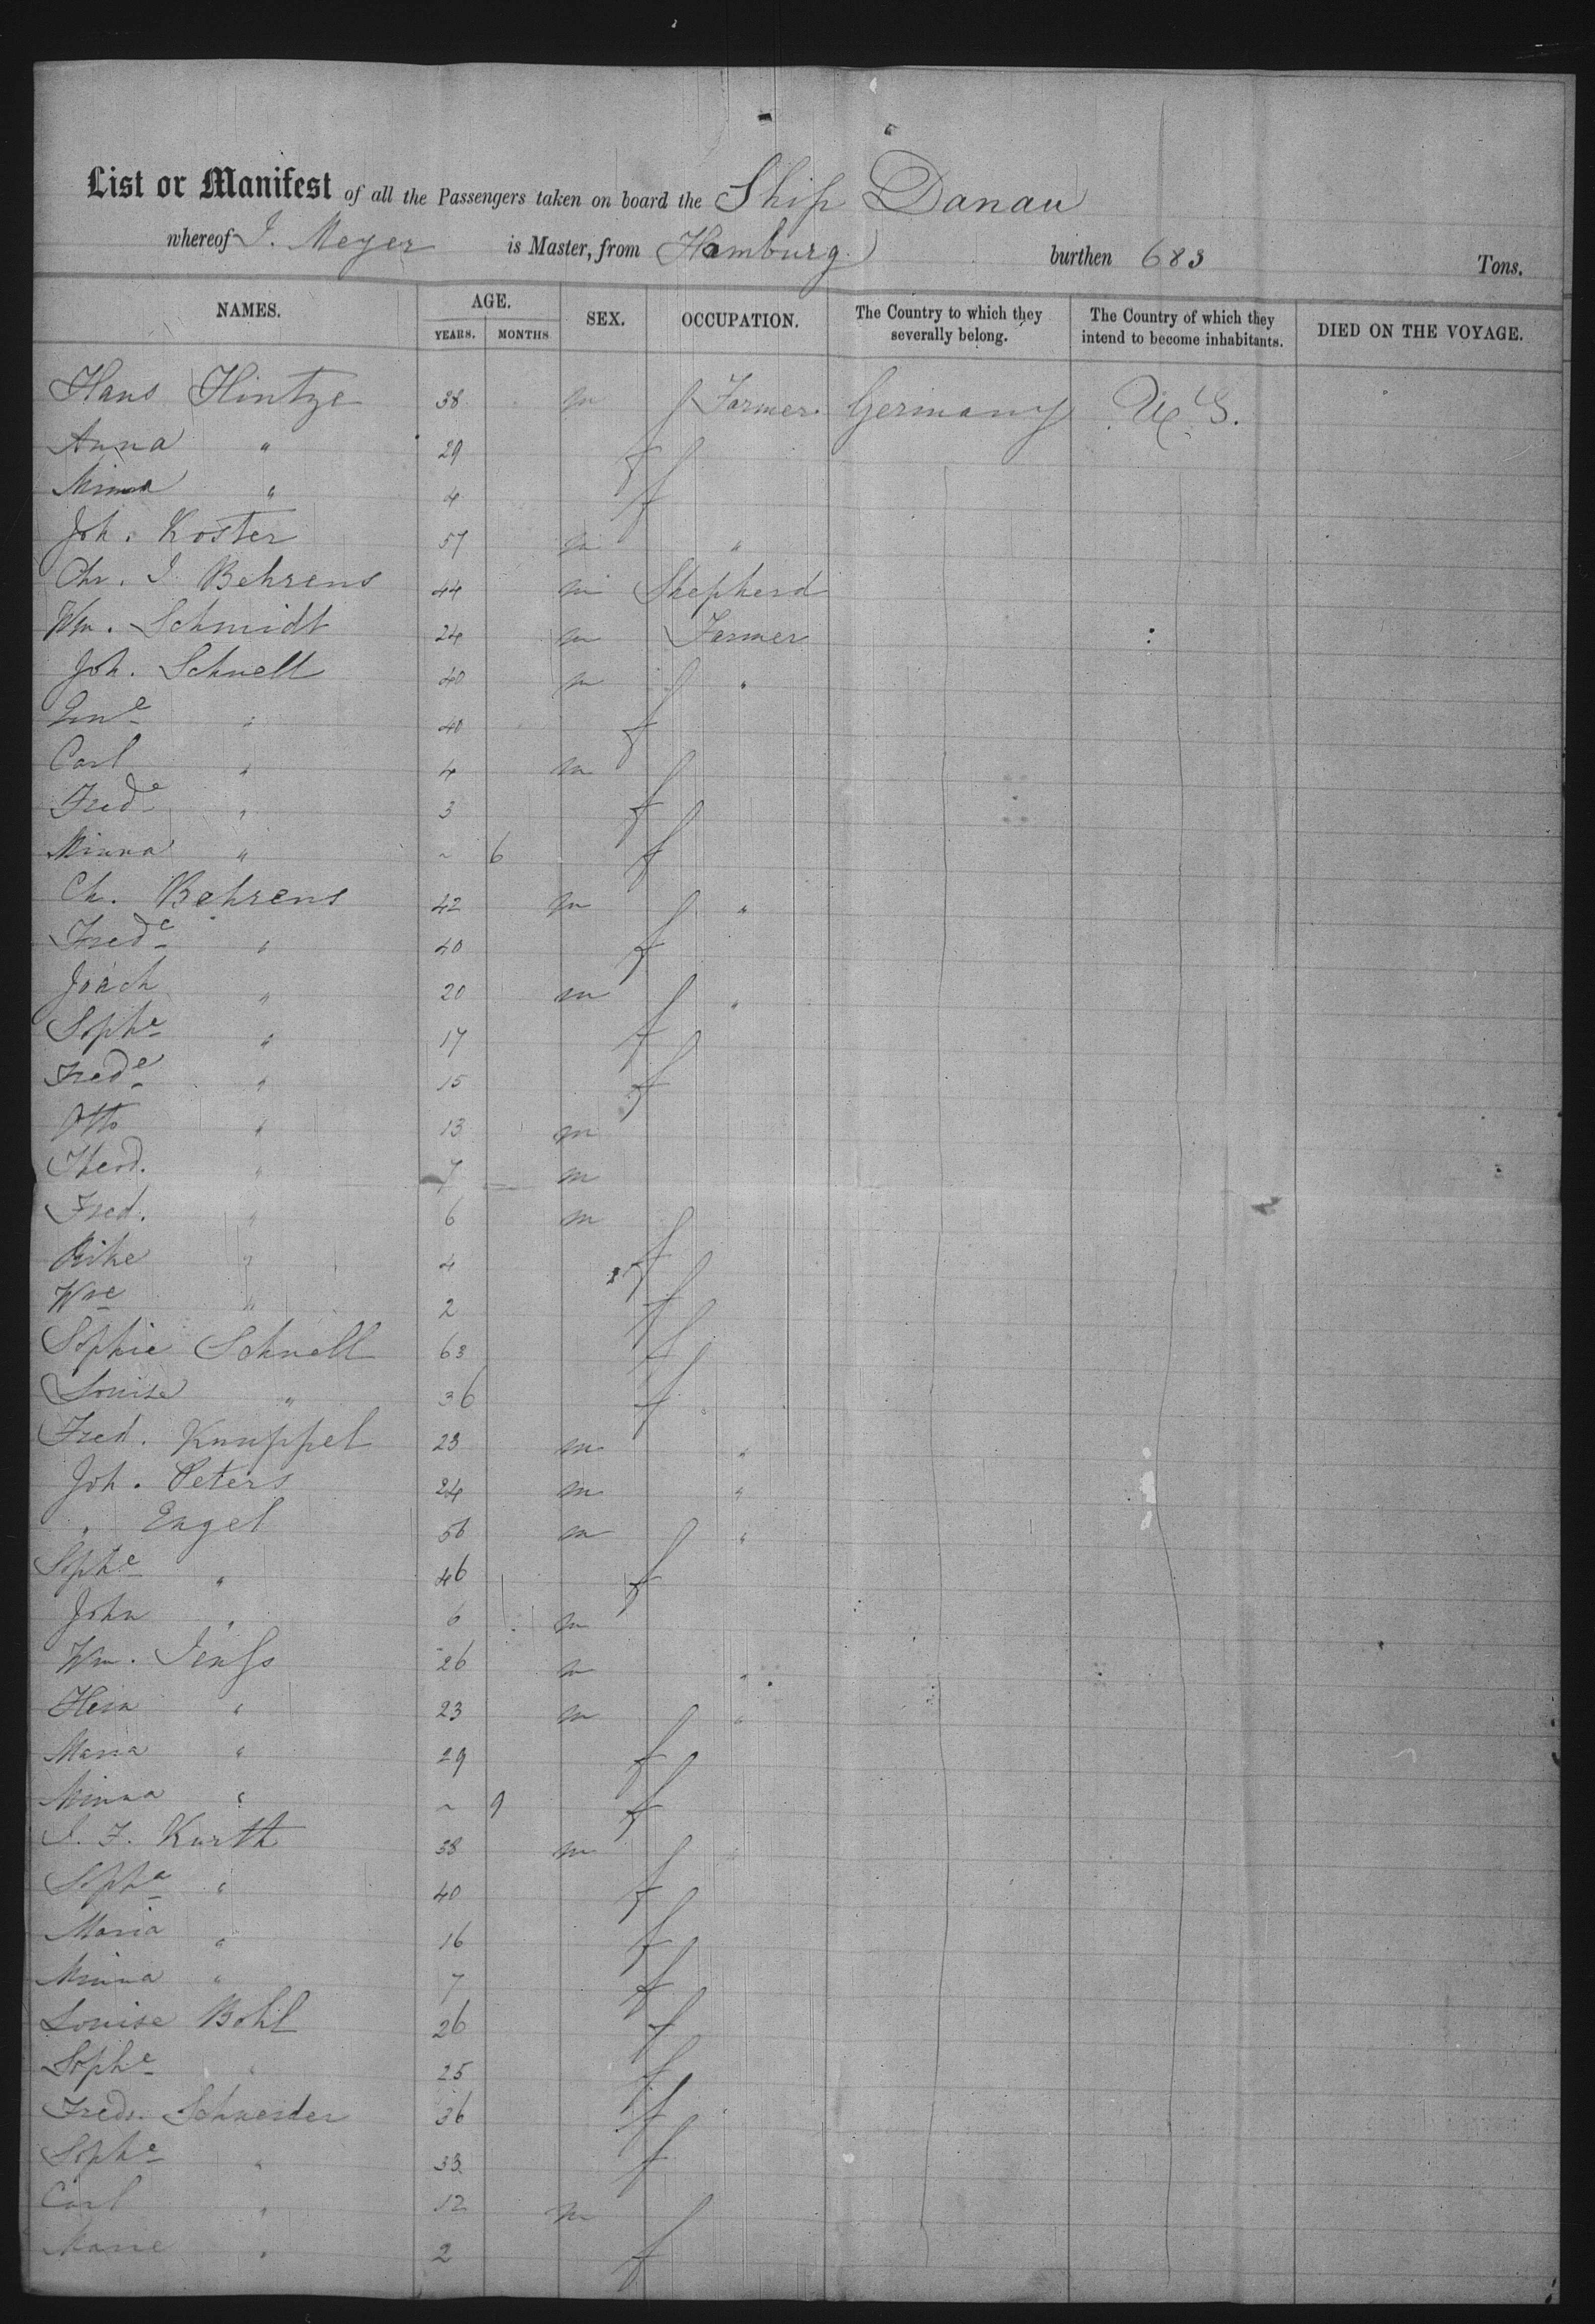 List or Manifest of all the Passengers taken on board the Ship Danau
whereof J. Meyer is Master, from Hamburg burthen 683 Tons.
NAMES. AGE. YEARS. MONTHS SEX. OCCUPATION. The Country to which they severally belong. The Country of which they intend to become inhabitants. DIED ON THE VOYAGE.
Hans Hintze 38 m Farmer Germany U.S.
Anna " 29 f
Minna " 4 f
Joh. Koster 57 m "
Chr. J. Behrens 44 m Shepherd
Wm. Schmidt 24 m Farmer
Joh. Schnell 40 m "
" 40 f
Carl " 4 m
Frede " 3 f
Minna " ~ 6 f
Ch. Behrens 42 m "
Frede " 40 f
Joach " 20 m "
Sophe " 17 f
Frede " 15 f
Otto " 13 m
Theod. " 7 m
Fred. " 6 m
Rike " 4 f
Wme " 2 f
Sophie Schnell 63 f
Louise " 36 f
Fred. Knuppel 23 m "
Joh. Peters 24 m "
" Engel 56 m "
Sophe " 46 f
John " 6 m
Wm. Jenss 26 m "
Hein " 23 m "
Maria " 29 f
Minna " ~ 9 f
J. F. Kurth 38 m "
Sophe " 40 f
Maria " 16 f
Minna " 7 f
Louise Bohl 26 f
Sophe " 25 f
Fredr. Schneider 36 f
Sophe " 33 f
Carl " 12 m
Marie " 2 f